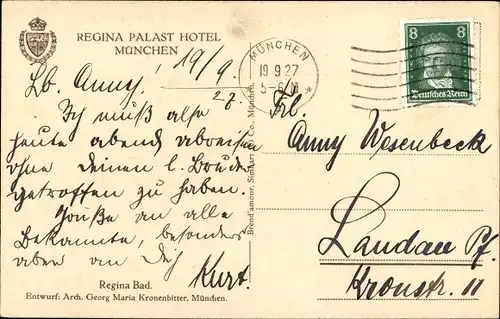 REGINA PALAST HOTEL
MÜNCHEN
19/9.
27.
Lb. Anny!
Ich muß also
heute abend abreisen
ohne deinen l. Bruder
getroffen zu haben.
Grüße an alle
Bekannte, besonders
aber an Dich
Kurt.
Regina Bad.
Entwurf: Arch. Georg Maria Kronenbitter, München.
Co., München.
MÜNCHEN
19.9.27
8
8
Deutsches Reich
Frl.
Anny Wesenbeck
Landau Pf.
Kronstr. 11